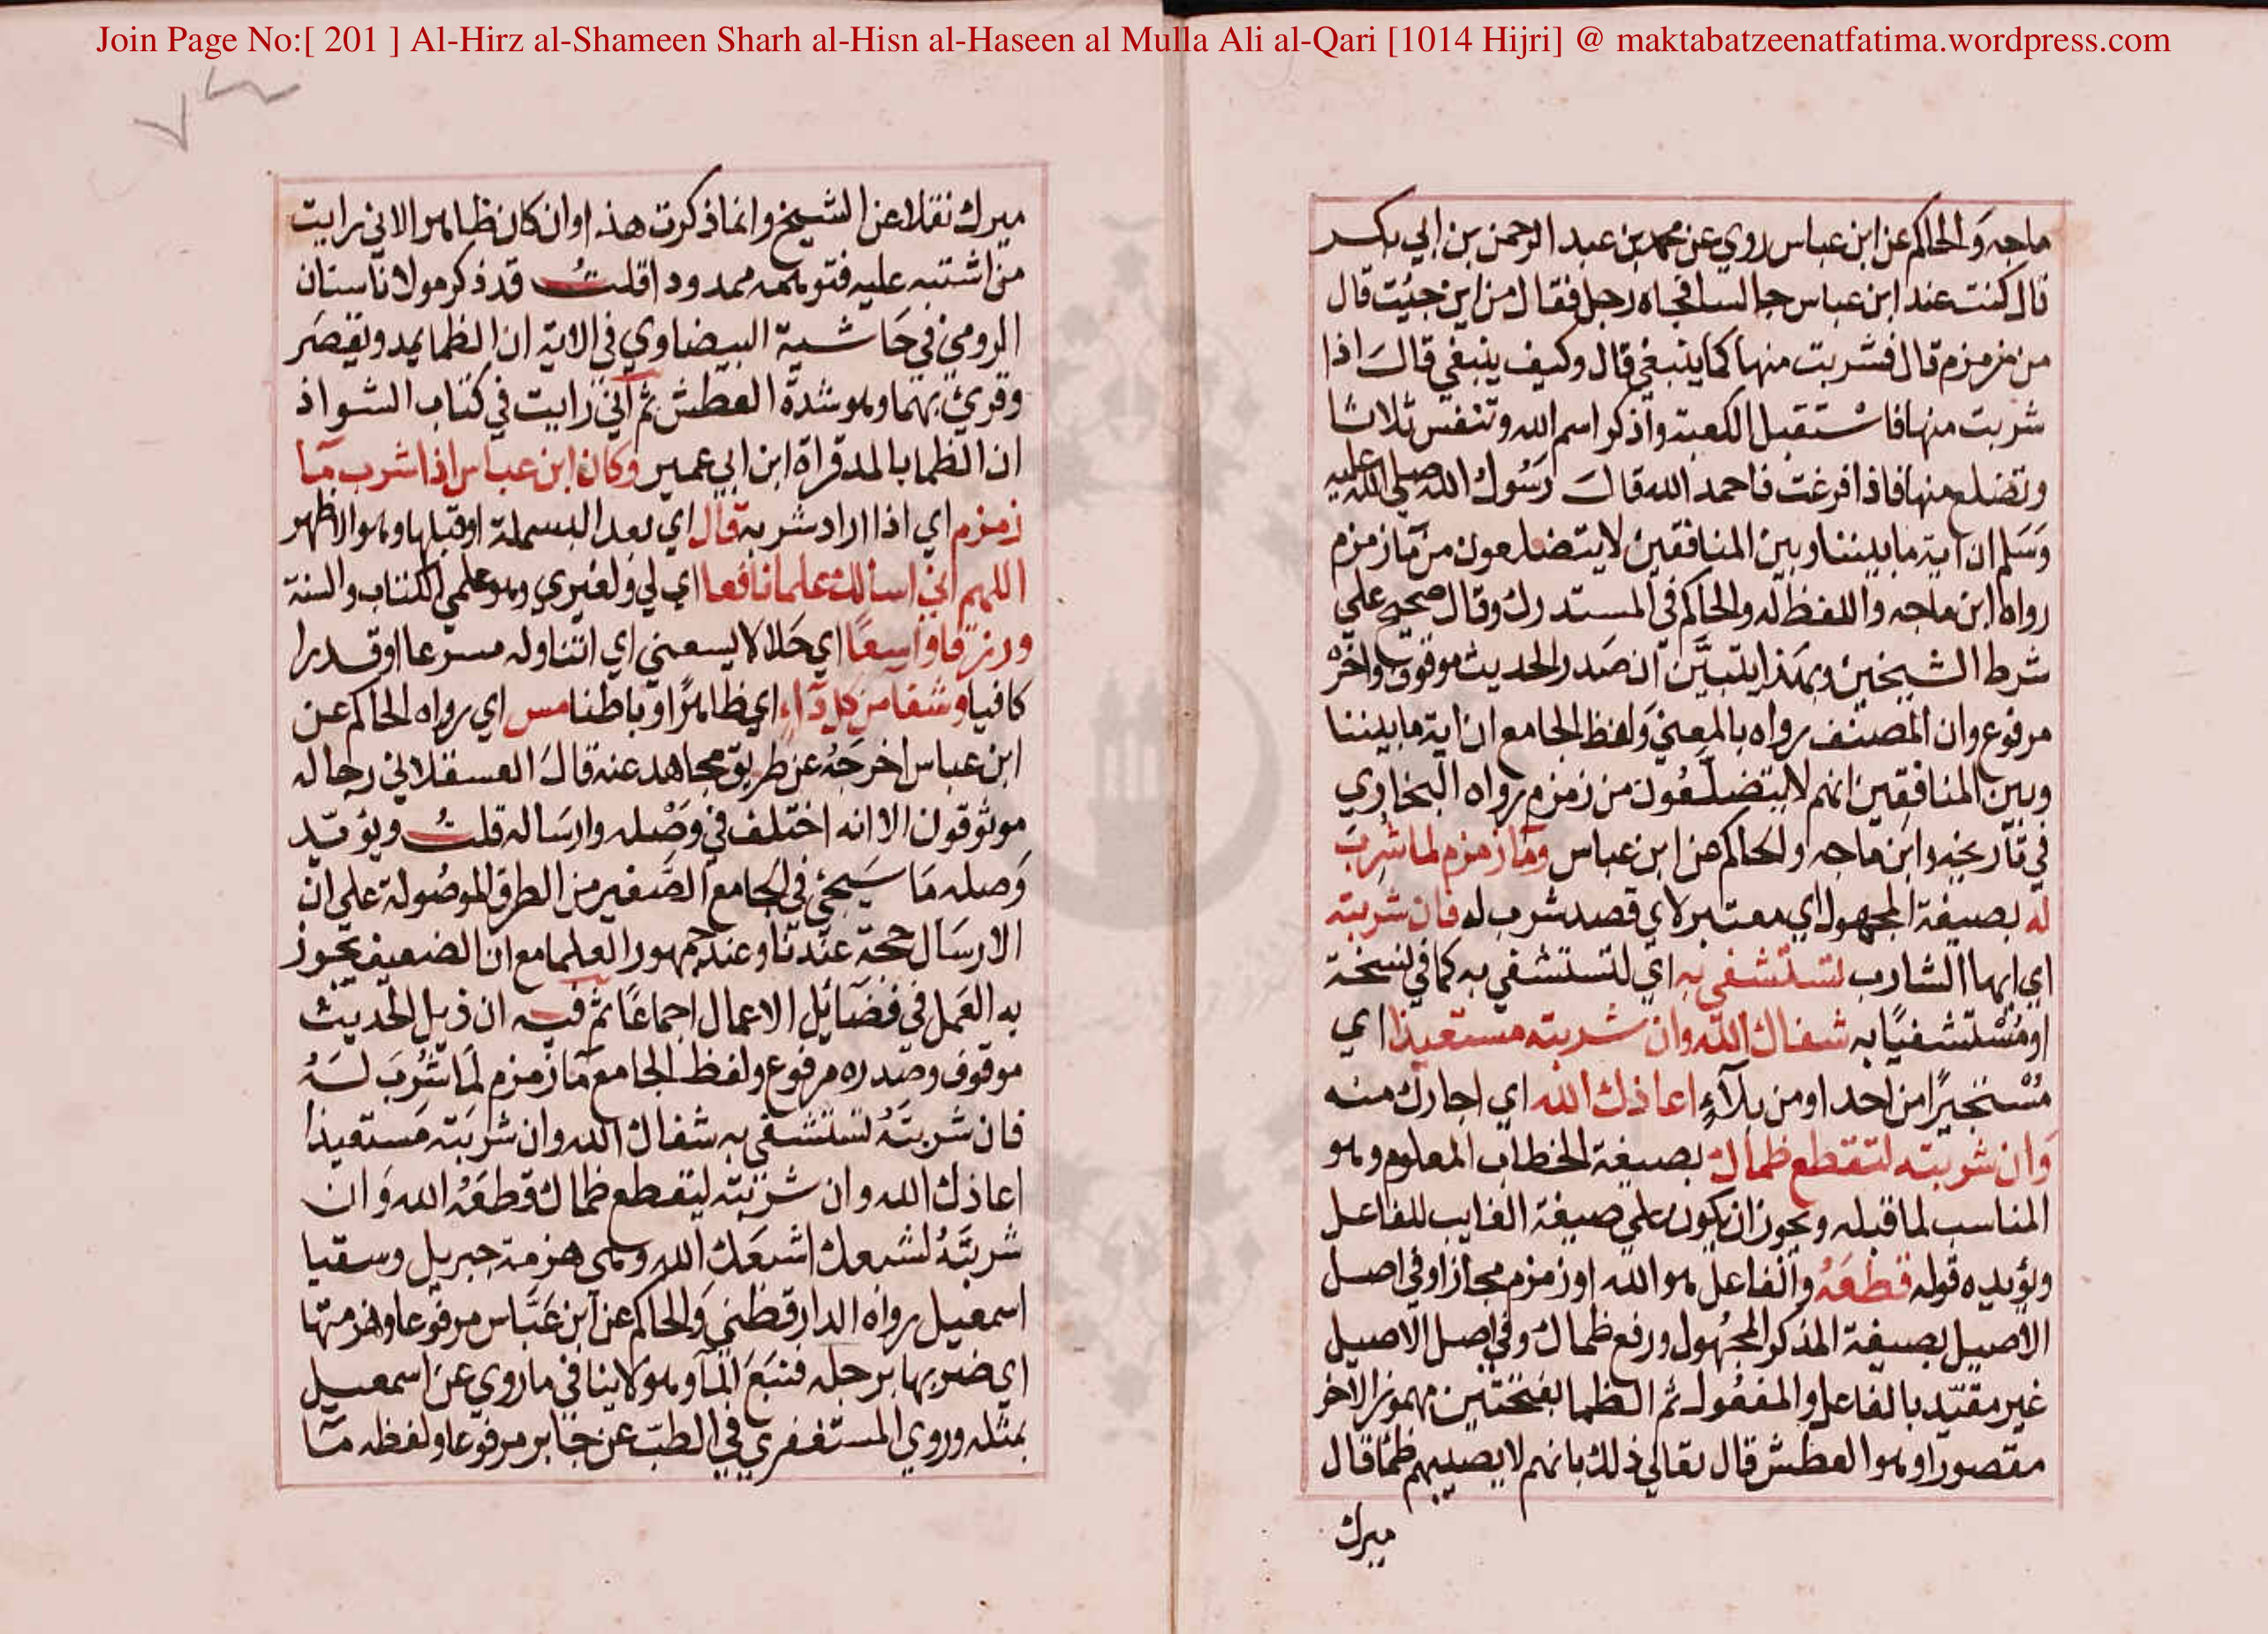 Join Page No:[ 201 ] Al-Hirz al-Shameen Sharh al-Hisn al-Haseen al Mulla Ali al-Qari [1014 Hijri] @ maktabatzeenatfatima.wordpress.com
ماجه والحاكم عن ابن عباس روي عن محمد بن عبد الرحمن بن ابي بكر
قال كنت عند ابن عباس جالسا فجاه رجل فقال من اين جيئت قال
من زمزم قال فشربت منها كما ينبغي قال وكيف ينبغي قال اذا
شربت منها فاستقبل الكعبة واذكر اسم الله وتنفس ثلاثا
وتضلع منها فاذا فرغت فاحمد الله قال رسول الله صلي الله عليه
وسلم ان اية ما بيننا وبين المنافقين لا يتضلعون من ماز مزم
رواه ابن ماجه واللفظ له والحاكم في المستدرك وقال صحيح علي
شرط الشيخين وبهذا يتبين ان صدر الحديث موقوف واخره
مرفوع وان المصنف رواه بالمعني ولفظ الجامع ان اية ما بيننا
وبين المنافقين انهم لا يتضلعون من زمزم رواه البخاري
في تاريخه وابن ماجه والحاكم عن ابن عباس وما زمزم لما شرب
له بصيغة المجهول اي معتبر لاي قصد شرب له فان شربته
اي ايها الشارب تستشفي به اي لتستشفي به كما في نسخة
او مستشفيا به شفاك الله وان شربته مستعيذا اي
مستجيرا من احد او من بلآء اعاذك الله اي اجارك منه
وان شربته لتقطع ظماك بصيغة الخطاب المعلوم وهو
المناسب لما قبله ويجوز ان يكون علي صيغة الغايب للفاعل
ويؤيده قوله قطعه والفاعل هو الله او زمزم مجازا وفي اصل
الاصيل بصيغة المذكر المجهول ورفع ظماك وفي اصل الاصيل
غير مقيد بالفاعل والمفعول ثم الظما بفتحتين مهموز الاخر
مقصورا وهو العطش قال تعالي ذلك بانهم لا يصيبهم ظما قال
ميرك
ميرك نقلا عن الشيخ وانما ذكرت هذا وان كان ظاهرا لاني رايت
من اشتبه عليه فتوهمه ممدودا قلت قد ذكر مولانا سنان
الرومي في حاشية البيضاوي في الاية ان الظما يمد ويقصر
وقرئ بهما وهو شدة العطش ثم اني رايت في كتاب الشواذ
ان الظما بالمد قراة ابن ابي عمير وكان ابن عباس اذا شرب ما
زمزم اي اذا اراد شربه قال اي بعد البسملة او قبلها وهو الاظهر
اللهم اني اسالك علما نافعا اي لي ولغيري وهو علمي الكتاب والسنة
ورزقا واسعا اي حلالا يسعني اي اتناوله مسرعا او قدرا
كافيا وشفا من كل دآء اي ظاهرا او باطنا مس اي رواه الحاكم عن
ابن عباس اخرجه عن طريق مجاهد عنه قال العسقلاني رجاله
موثوقون الا انه اختلف في وصله وارساله قلت ويؤيد
وصله ما سيجئ في الجامع الصغير من الطرق الموصولة علي ان
الارسال حجة عندنا وعند جمهور العلما مع ان الضعيف يجوز
به العمل في فضائل الاعمال اجماعا ثم فيه ان ذيل الحديث
موقوف وصدره مرفوع ولفظ الجامع ما زمزم لما شرب له
فان شربته تستشفي به شفاك الله وان شربته مستعيذا
اعاذك الله وان شربته ليقطع ظماك قطعه الله وان
شربته لشبعك اشبعك الله وهي هزمة جبريل وسقيا
اسمعيل رواه الدارقطني والحاكم عن ابن عباس مرفوعا وهزمتها
اي ضربها برجله فنبع الما وهو لا ينافي ما روي عن اسمعيل
بمثله وروي المستغفري في الطب عن جابر مرفوعا ولفظه ما